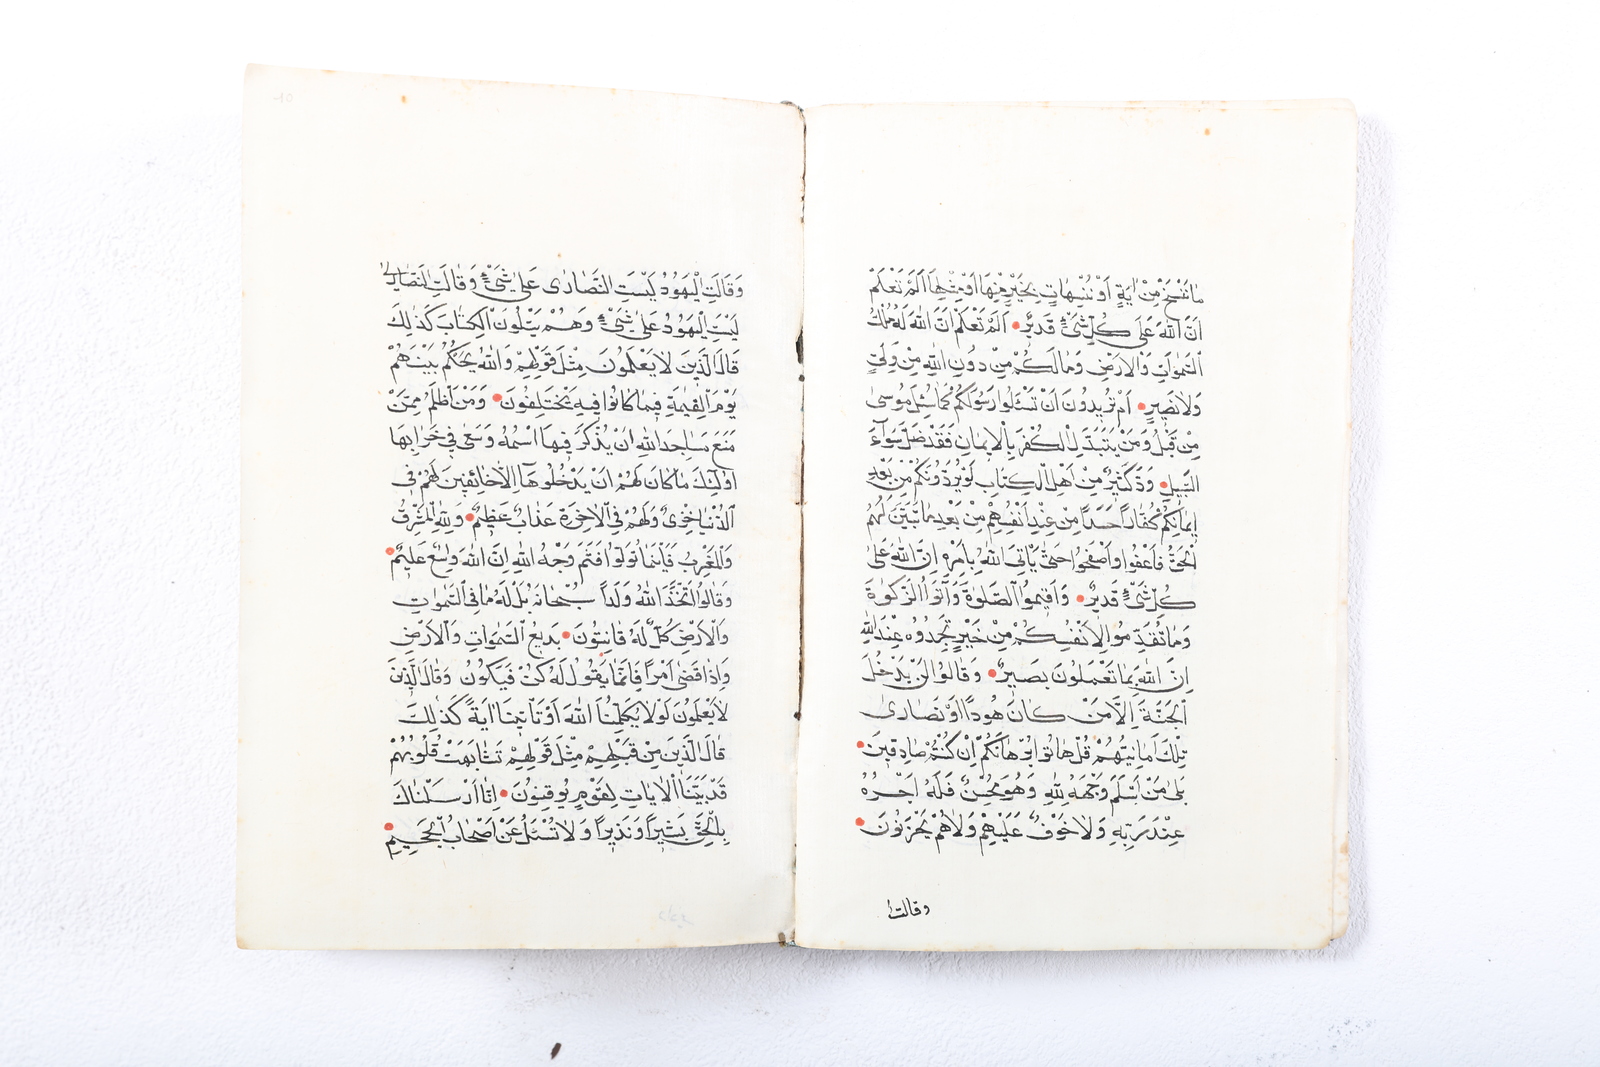 مَا نَنْسَخْ مِنْ اٰيَةٍ اَوْ نُنْسِهَا نَاْتِ بِخَيْرٍ مِنْهَا اَوْ مِثْلِهَا اَلَمْ تَعْلَمْ
اَنَّ اللّٰهَ عَلٰى كُلِّ شَيْءٍ قَدِيرٌ اَلَمْ تَعْلَمْ اَنَّ اللّٰهَ لَهُ مُلْكُ
السَّمٰوَاتِ وَالْاَرْضِ وَمَا لَكُمْ مِنْ دُونِ اللّٰهِ مِنْ وَلِيٍّ
وَلَا نَصِيرٍ اَمْ تُرِيدُونَ اَنْ تَسْئَلُوا رَسُولَكُمْ كَمَا سُئِلَ مُوسٰى
مِنْ قَبْلُ وَمَنْ يَتَبَدَّلِ الْكُفْرَ بِالْاِيمَانِ فَقَدْ ضَلَّ سَوَآءَ
السَّبِيلِ وَدَّ كَثِيرٌ مِنْ اَهْلِ الْكِتَابِ لَوْ يَرُدُّونَكُمْ مِنْ بَعْدِ
اِيمَانِكُمْ كُفَّارًا حَسَدًا مِنْ عِنْدِ اَنْفُسِهِمْ مِنْ بَعْدِ مَا تَبَيَّنَ لَهُمُ
الْحَقُّ فَاعْفُوا وَاصْفَحُوا حَتّٰى يَاْتِيَ اللّٰهُ بِاَمْرِهِ اِنَّ اللّٰهَ عَلٰى
كُلِّ شَيْءٍ قَدِيرٌ وَاَقِيمُوا الصَّلٰوةَ وَاٰتُوا الزَّكٰوةَ
وَمَا تُقَدِّمُوا لِاَنْفُسِكُمْ مِنْ خَيْرٍ تَجِدُوهُ عِنْدَ اللّٰهِ
اِنَّ اللّٰهَ بِمَا تَعْمَلُونَ بَصِيرٌ وَقَالُوا لَنْ يَدْخُلَ
الْجَنَّةَ اِلَّا مَنْ كَانَ هُودًا اَوْ نَصَارٰى
تِلْكَ اَمَانِيُّهُمْ قُلْ هَاتُوا بُرْهَانَكُمْ اِنْ كُنْتُمْ صَادِقِينَ
بَلٰى مَنْ اَسْلَمَ وَجْهَهُ لِلّٰهِ وَهُوَ مُحْسِنٌ فَلَهُ اَجْرُهُ
عِنْدَ رَبِّهِ وَلَا خَوْفٌ عَلَيْهِمْ وَلَا هُمْ يَحْزَنُونَ
وقالت
وَقَالَتِ الْيَهُودُ لَيْسَتِ النَّصَارٰى عَلٰى شَيْءٍ وَقَالَتِ النَّصَارٰى
لَيْسَتِ الْيَهُودُ عَلٰى شَيْءٍ وَهُمْ يَتْلُونَ الْكِتَابَ كَذٰلِكَ
قَالَ الَّذِينَ لَا يَعْلَمُونَ مِثْلَ قَوْلِهِمْ وَاللّٰهُ يَحْكُمُ بَيْنَهُمْ
يَوْمَ الْقِيٰمَةِ فِيمَا كَانُوا فِيهِ يَخْتَلِفُونَ وَمَنْ اَظْلَمُ مِمَّنْ
مَنَعَ مَسَاجِدَ اللّٰهِ اَنْ يُذْكَرَ فِيهَا اسْمُهُ وَسَعٰى فِي خَرَابِهَا
اُولٰئِكَ مَا كَانَ لَهُمْ اَنْ يَدْخُلُوهَا اِلَّا خَائِفِينَ لَهُمْ فِي
الدُّنْيَا خِزْيٌ وَلَهُمْ فِي الْاٰخِرَةِ عَذَابٌ عَظِيمٌ وَلِلّٰهِ الْمَشْرِقُ
وَالْمَغْرِبُ فَاَيْنَمَا تُوَلُّوا فَثَمَّ وَجْهُ اللّٰهِ اِنَّ اللّٰهَ وَاسِعٌ عَلِيمٌ
وَقَالُوا اتَّخَذَ اللّٰهُ وَلَدًا سُبْحَانَهُ بَلْ لَهُ مَا فِي السَّمٰوَاتِ
وَالْاَرْضِ كُلٌّ لَهُ قَانِتُونَ بَدِيعُ السَّمٰوَاتِ وَالْاَرْضِ
وَاِذَا قَضٰى اَمْرًا فَاِنَّمَا يَقُولُ لَهُ كُنْ فَيَكُونُ وَقَالَ الَّذِينَ
لَا يَعْلَمُونَ لَوْلَا يُكَلِّمُنَا اللّٰهُ اَوْ تَاْتِينَا اٰيَةٌ كَذٰلِكَ
قَالَ الَّذِينَ مِنْ قَبْلِهِمْ مِثْلَ قَوْلِهِمْ تَشَابَهَتْ قُلُوبُهُمْ
قَدْ بَيَّنَّا الْاٰيَاتِ لِقَوْمٍ يُوقِنُونَ اِنَّا اَرْسَلْنَاكَ
بِالْحَقِّ بَشِيرًا وَنَذِيرًا وَلَا تُسْئَلُ عَنْ اَصْحَابِ الْجَحِيمِ